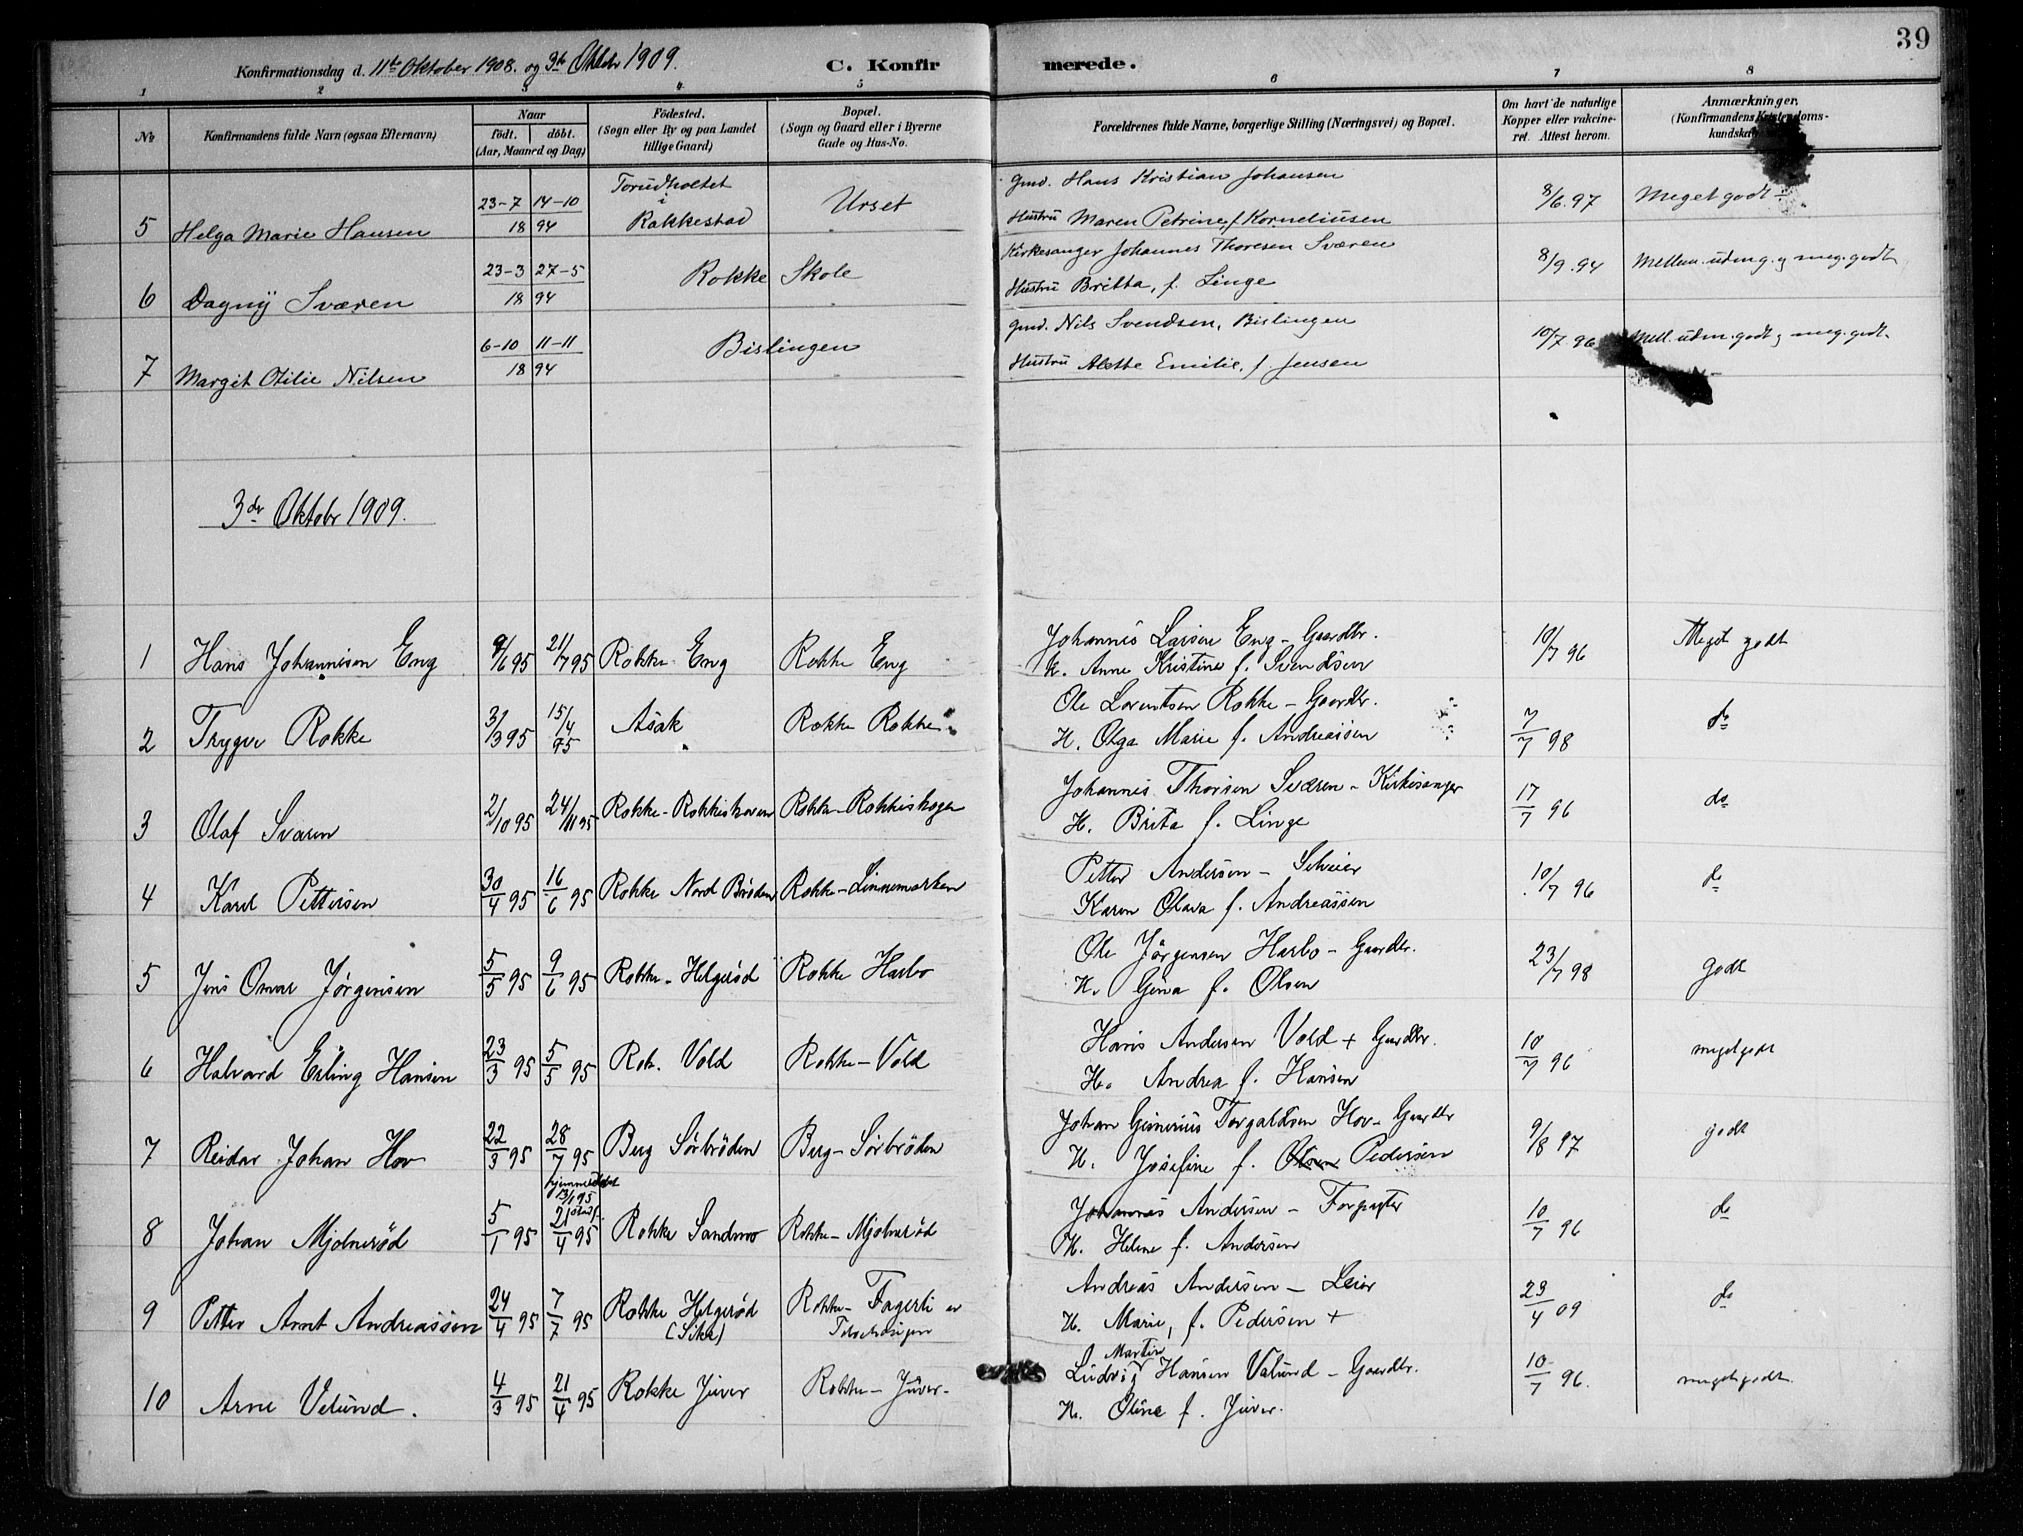 39
Konfirmationsdag d. 11te Oktober 1908. og 3de Oktobr 1909. C. Konfirmerede.
1 2 3 4 5 6 7 8
No
Konfirmandens fulde Navn (ogsaa Efternavn)
Naar
født. døbt.
(Aar, Maaned og Dag)
Fødested.
(Sogn eller By og paa Landet
tillige Gaard)
Bopæl.
(Sogn og Gaard eller i Byerne
Gade og Hus-No.
Forældrenes fulde Navne, borgerlige Stilling (Næringsvei) og Bopæl.
Om havt de naturlige
Kopper eller vakcine-
ret. Attest herom.
Anmærkninger.
(Konfirmandens Kristendoms-
kundskab
5 Helga Marie Hansen 23-7 14-10 1894 Torudholtet i Rakkestad Urset
Gmd. Hans Kristian Johansen
Hustru Maren Petrine, f. Korneliusen
8/6.97 Meget godt
6 Dagny Sværen 23-3 27-5 1894 Rokke Skole
Kirkesanger Johannes Thoresen Sværen
Hustru Britta, f. Linge
8/9.94 Mellem udm.g. og meg. godt
7 Margit Otilie Nilsen 6-10 11-11 1894 Bislingen
Gmd. Nils Svendsen, Bislingen
Hustru Alette Emilie, f. Jensen
10/7 96 Mell. udm. godt og meg. godt
3de Oktobr 1909.
1 Hans Johannesen Eng 9/6 95 21/7 95 Rokke Eng Rokke Eng
Johannes Larsen Eng - Gaardbr.
H. Anne Kristine f. Svendsen
10/7 96 Meget godt
2 Trygve Rokke 31/3 95 15/4 95 Asak Rokke Rokke
Ole Lorentsen Rokke - Gaardbr.
H. Olga Marie f. Andreassen
7/7 98 do
3 Olaf Sværen 2/10 95 24/11 95 Rokke - Rokkeskoven Rokke - Rokkeskogen
Johannes Thorsen Sværen - Kirkesanger
H. Brita f. Linge
17/7 96 do
4 Karl Pettersen 30/4 95 16/6 95 Rokke Nord Brøden Rokke - Linnemarken
Petter Andersen -
Karen Olava f. Andreassen
10/7 96 do
5 Jens Omar Jørgensen 5/5 95 9/6 95 Rokke - Helgerød Rokke Harbo
Ole Jørgensen Harbo - Gaardbr.
H. Gina f. Olsen
23/7 98 godt
6 Halvard Erling Hansen 23/3 95 5/5 95 Rok. Vold Rokke - Vold
Hans Andersen Vold + Gaardbr.
H. Andrea f. Hansen
10/7 96 megetgodt
7 Reidar Johan Hov 22/3 95 28/7 95 Berg Sørbrøden Berg - Sørbrøden
Johan Gunerius Torgaldsen Hov - Gaardbr
H. Josefine f. Olsen Pedersen
9/8 97 godt
8 Johan Mjølnerød 5/1 95 hjemmedøbt 13/1 95 21/4 95 Rokke Sandmo Rokke - Mjølnerød
Johannes Andersen - Forpagter
H. Helene f. Andersen
10/7 96 do
9 Petter Arnt Andreassen 24/4 95 7/7 95 Rokke Helgerød Rokke - Fagerli
Andreas Andersen - Leier
H. Marie, f. Pedersen +
23/4 09 do
10 Arne Velund. 4/3 95 21/4 95 Rokke Juver Rokke - Juver -
Ludvig Martin Hansen Valund - Gaardbr.
H. Oline f. Juver.
10/7 96. megetgodt.